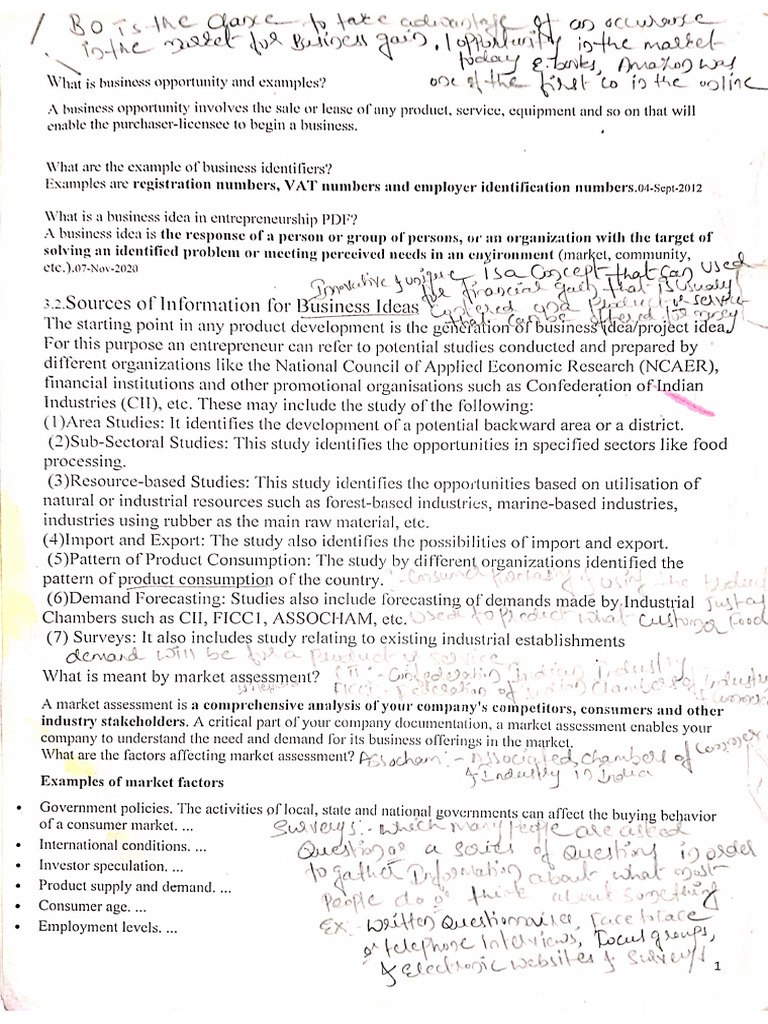 BO is the Chance to take advantage of an occurance
in the market for Business gain. 1 opportunity in the market
today E. banks, Amazon was
one of the first co in the online
What is business opportunity and examples?
A business opportunity involves the sale or lease of any product, service, equipment and so on that will
enable the purchaser-licensee to begin a business.
What are the example of business identifiers?
Examples are registration numbers, VAT numbers and employer identification numbers.04-Sept-2012
What is a business idea in entrepreneurship PDF?
A business idea is the response of a person or group of persons, or an organization with the target of
solving an identified problem or meeting perceived needs in an environment (market, community,
etc.).07-Nov-2020
Innovative & unique Is a Concept that can used
for financial gain that is usually
Centered product or service
that can be offered for money
3.2.Sources of Information for Business Ideas
The starting point in any product development is the generation of business idea/project idea.
For this purpose an entrepreneur can refer to potential studies conducted and prepared by
different organizations like the National Council of Applied Economic Research (NCAER),
financial institutions and other promotional organisations such as Confederation of Indian
Industries (CII), etc. These may include the study of the following:
(1)Area Studies: It identifies the development of a potential backward area or a district.
(2)Sub-Sectoral Studies: This study identifies the opportunities in specified sectors like food
processing.
(3)Resource-based Studies: This study identifies the opportunities based on utilisation of
natural or industrial resources such as forest-based industries, marine-based industries,
industries using rubber as the main raw material, etc.
(4)Import and Export: The study also identifies the possibilities of import and export.
(5)Pattern of Product Consumption: The study by different organizations identified the
pattern of product consumption of the country. - Consumer & using the product
(6)Demand Forecasting: Studies also include forecasting of demands made by Industrial
Chambers such as CII, FICC1, ASSOCHAM, etc. used to predict what Customer
(7) Surveys: It also includes study relating to existing industrial establishments
demand will be for a product or service
What is meant by market assessment? CII :- Confederation Indian Industry
FICCI :- Federation of Indian Chambers of
A market assessment is a comprehensive analysis of your company's competitors, consumers and other
industry stakeholders. A critical part of your company documentation, a market assessment enables your
company to understand the need and demand for its business offerings in the market.
What are the factors affecting market assessment? Assocham :- Associated Chambers of
& Industry in India
Examples of market factors
• Government policies. The activities of local, state and national governments can affect the buying behavior
of a consumer market. ...
• International conditions. ...
• Investor speculation. ...
• Product supply and demand. ...
• Consumer age. ...
• Employment levels. ...
Surveys :- which many people are asked
Question or a series of Question in order
to gather Information about what most
People do or think about something.
Ex :- Written Questionnaire, Face to face
or telephone Interviews, Focus groups,
& Electronic websites & Surveys
1